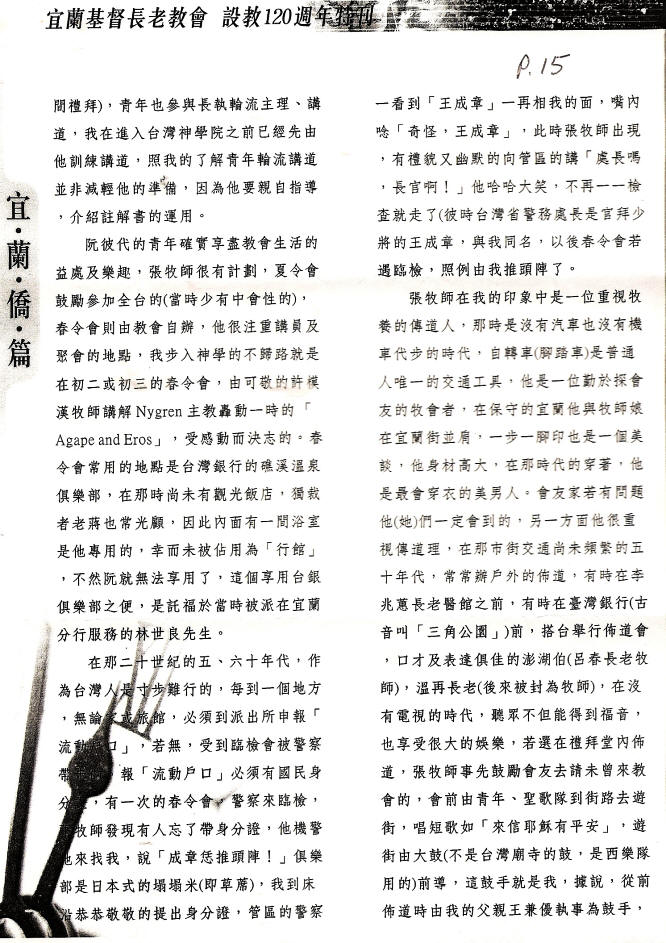 宜蘭基督長老教會 設教120週年特刊
P.15
宜·蘭·僑·篇
間禮拜)，青年也參與長執輪流主理、講
道，我在進入台灣神學院之前已經先由
他訓練講道，照我的了解青年輪流講道
並非減輕他的準備，因為他要親自指導
，介紹註解書的運用。
阮彼代的青年確實享盡教會生活的
益處及樂趣，張牧師很有計劃，夏令會
鼓勵參加全台的(當時少有中會性的)，
春令會則由教會自辦，他很注重講員及
聚會的地點，我步入神學的不歸路就是
在初二或初三的春令會，由可敬的許模
漢牧師講解 Nygren 主教轟動一時的「
Agape and Eros」，受感動而決志的。春
令會常用的地點是台灣銀行的礁溪溫泉
俱樂部，在那時尚未有觀光飯店，獨裁
者老蔣也常光顧，因此內面有一間浴室
是他專用的，幸而未被佔用為「行館」
，不然阮就無法享用了，這個享用台銀
俱樂部之便，是託福於當時被派在宜蘭
分行服務的林世良先生。
在那二十世紀的五、六十年代，作
為台灣人是寸步難行的，每到一個地方
，無論家或旅館，必須到派出所申報「
流動戶口」，若無，受到臨檢會被警察
帶 報「流動戶口」必須有國民身
分 ，有一次的春令會，警察來臨檢，
牧師發現有人忘了帶身分證，他機警
地來找我，說「成章恁推頭陣！」俱樂
部是日本式的塌塌米(即草蓆)，我到床
沿恭恭敬敬的提出身分證，管區的警察
一看到「王成章」一再相我的面，嘴內
唸「奇怪，王成章」，此時張牧師出現
，有禮貌又幽默的向管區的講「處長嗎
，長官啊！」他哈哈大笑，不再一一檢
查就走了(彼時台灣省警務處長是官拜少
將的王成章，與我同名，以後春令會若
遇臨檢，照例由我推頭陣了。
張牧師在我的印象中是一位重視牧
養的傳道人，那時是沒有汽車也沒有機
車代步的時代，自轉車(腳踏車)是普通
人唯一的交通工具，他是一位勤於探會
友的牧會者，在保守的宜蘭他與牧師娘
在宜蘭街並肩，一步一腳印也是一個美
談，他身材高大，在那時代的穿著，他
是最會穿衣的美男人。會友家若有問題
他(她)們一定會到的，另一方面他很重
視傳道理，在那市街交通尚未頻繁的五
十年代，常常辦戶外的佈道，有時在李
兆蕙長老醫館之前，有時在臺灣銀行(古
音叫「三角公園」)前，搭台舉行佈道會
，口才及表達俱佳的澎湖伯(呂春長老牧
師)，溫再長老(後來被封為牧師)，在沒
有電視的時代，聽眾不但能得到福音，
也享受很大的娛樂，若選在禮拜堂內佈
道，張牧師事先鼓勵會友去請未曾來教
會的，會前由青年、聖歌隊到街路去遊
街，唱短歌如「來信耶穌有平安」，遊
街由大鼓(不是台灣廟寺的鼓，是西樂隊
用的)前導，這鼓手就是我，據說，從前
佈道時由我的父親王兼優執事為鼓手，